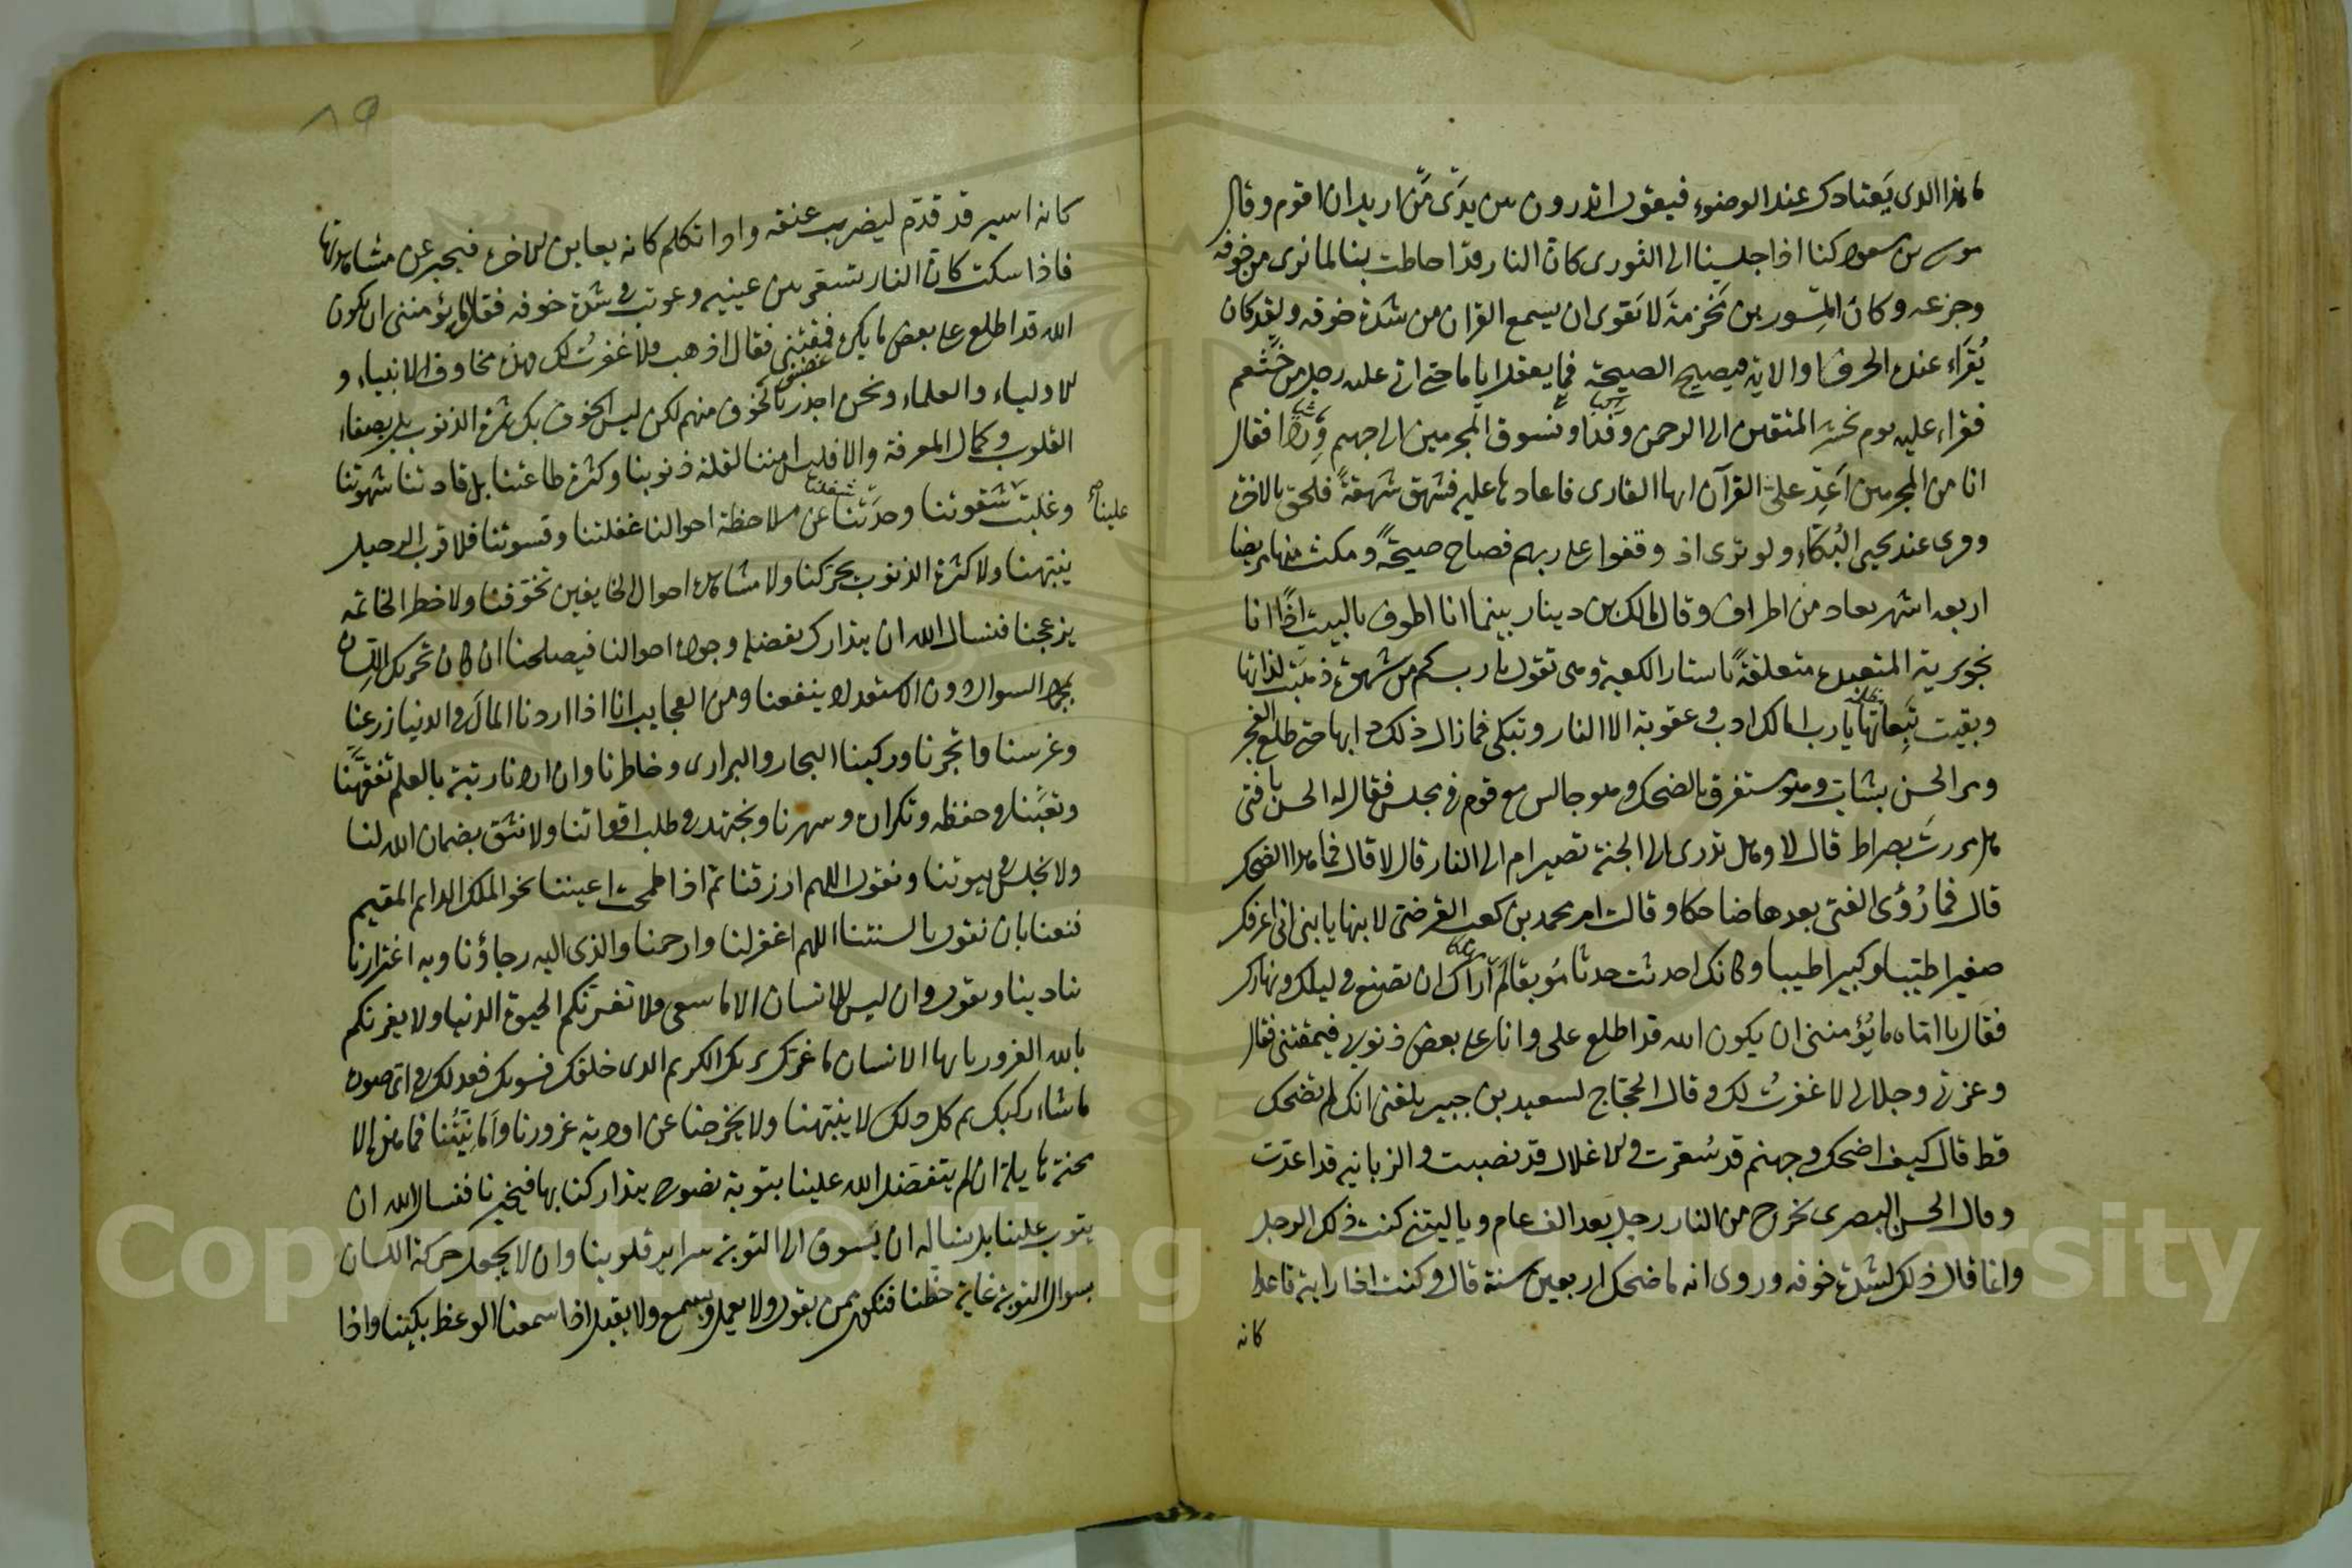 ما هذا الذى يَعتادك عند الوضوء فيقول اتدرون بين يدَىْ مَنْ اريد ان اقوم وقال
موسى بن مسعود كنا اذا جلسنا الى الثورى كان النار قد احاطت بنا لما نرى من خوفه
وجزعه وكان المِسور بن مَخرمة لا يَقوى ان يسمع القران من شدة خوفه ولقد كان
يُقرَاء عنده الحرف او الاية فيصيح الصيحة فما يعقل اياما حتى اتى عليه رجل من خثعم
فقراء عليه يوم نحشر المتقين الى الرحمن وَفْدًا ونسوق المجرمين الى جهنم وِردًا فقال
انا من المجرمين اَعِدْ علىّ القرآن ايها القارى فاعادها عليه فشهق شهقةً فلحق بالاخرة
وقرى عند يحيى البُكّاء ولو ترى اذ وقفوا على ربهم فصاح صيحةً ومكث منها مريضا
اربعة اشهر يعاد من اطراف وقال مالك بن دينار بينما انا اطوف بالبيت اذًا انا
بجويرية المتعبدة متعلقةً باستار الكعبة وهى تقول يا رب كم من شهوة ذهبَتْ لذاتها
وبقيت تَبِعاتها يا رب اما لك ادب وعقوبة الا النار وتبكى فما زال ذلك دابها حتى طلع الفجر
ومر الحسن بشاب وهو مستغرق بالضحك وهو جالس مع قوم فى مجلس فقال له الحسن يا فتى
هل مررتَ بصراط قال لا وهل تدرى الى الجنة تصير ام الى النار قال لا قال فما هذا الضحك
قال فما رُؤى الفتى بعدها ضاحكا وقالت ام محمد بن كعب القرضى لابنها يا بنى انى اعرفك
صغيرا طيّبا وكبيرا طيبا وكانك احدثت حدثا مُوبقا لَما اراك ان تصنع فى ليلك ونهارك
فقال يا امّاه ما يُؤمننى ان يكون الله قد اطلع على وانا على بعض ذنوبى فيمقتنى فقال
وعزتى وجلالى لا غفرتُ لك وقال الحجّاج لسعيد بن جبير بلغنى انك لم تضحك
قط قال كيف اضحك وجهنم قد سُعّرت والاغلال قد نصبت والزبانيه قد اعدّت
وقال الحسن البصرى يخرج من النار رجل بعد الف عام ويا ليتنى كنت ذلك الرجل
وانما قال ذلك لشدة خوفه وروى انه ما ضحك اربعين سنة قال وكنت اذا رايته قاعدا
كانه
كانه اسير قد قدّم ليضرب عنقه واذا تكلم كانه يعاين الاخرة فيخبر عن مشاهدتها
فاذا سكت كان النار تسعّر بين عينيه وعوتب فى شدة خوفه فقال ما يؤمننى ان يكون
الله قد اطلع على بعض ما يكره فمقتنى فقال اذهب فلا غفرتُ لك فهذه مخاوف الانبياء و
الاولياء والعلماء ونحن اجدر بالخوف منهم لكن ليس الخوف بكثرة الذنوب بل بصفاء
القلوب وكمال المعرفة والا فليس امننا لقلة ذنوبنا وكثرة طاعتنا بل قادتنا شهوتنا
علينا وغلبَتْ شقوتنا وصدّتنا عن ملاحظة احوالنا غفلتنا وقسوتنا فلا قرب الرحيل
ينبّهنا ولا كثرة الذنوب يحرّكنا ولا مشاهدة احوال الخايفين تخوّفنا ولا خطر الخاتمه
يزعجنا فنسال الله ان يتدارك بفضله وجوده احوالنا فيصلحنا ان كان تحريك اللسان
بمجرد السوال دون الاستعداد ينفعنا ومن العجايب انا اذا اردنا المال فى الدنيا زرعنا
وغرسنا واتجرنا وركبنا البحار والبرارى وخاطرنا وان اردنا رتبة بالعلم تفقّهنا
وتعبنا فى حفظه وتكراره وسهرنا ونجتهد فى طلب اقواتنا ولا نثق بضمان الله لنا
ولا نجلس فى بيوتنا ونقول اللهم ارزقنا ثم اذا طمحت اعيننا نحو الملك الدايم المقيم
قنعنا بان نقول بالسنتنا اللهم اغفر لنا وارحمنا والذى اليه رجاؤنا وبه اغترارنا
ينادينا ويقول وان ليس للانسان الا ما سعى ولا تغرنّكم الحيوة الدنيا ولا يغرنكم
بالله الغرور يا ايها الانسان ما غرّك بربك الكريم الذى خلقك فسويك فعدلك فى اى صورة
ما شاء ركبك ثم كل ذلك لا ينبّهنا ولا يخرجنا عن اودية غرورنا وامانيّنا فما هذه الا
محنة هايلة ان لم يتفضل الله علينا بتوبة نصوح يتداركنا بها فيخبرنا فنسال الله ان
يتوب علينا بل نساله ان يَسوق الى التوبة سراير قلوبنا وان لا يجعل حركة اللسان
بسوال التوبة غاية حظّنا فنكون ممن يقول ولا يعمل ويسمع ولا يقبل اذا سمعنا الوعظ بكينا واذا